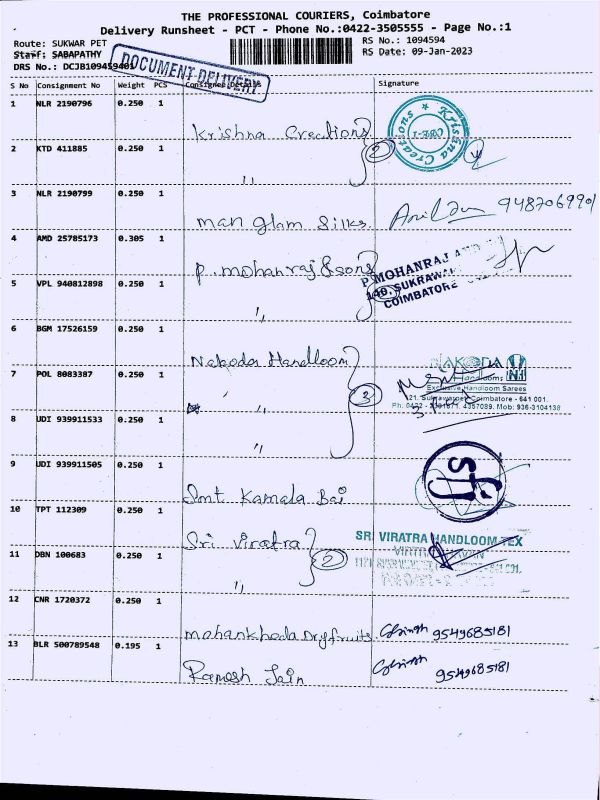 THE PROFESSIONAL COURIERS, Coimbatore
Delivery Runsheet - PCT - Phone No.:0422-3505555 - Page No.:1
Route: SUKWAR PET RS No.: 1094594
Staff: SABAPATHY RS Date: 09-Jan-2023
DRS No.: DCJB109459401
DOCUMENT DELIVERY
S No Consignment No Weight PCS Consignee Details Signature
1 NLR 2190796 0.250 1
Krishna Creations
Krishna Creations CBE-1
2 KTD 411885 0.250 1
2
"
3 NLR 2190799 0.250 1
man glam Silks. 9487069901
4 AMD 25785173 0.305 1
P. mohanraj & sons
P MOHANRAJ AND
140, SUKRAWAR
COIMBATORE
5 VPL 940812898 0.250 1
"
6 BGM 17526159 0.250 1
Nakoda Handloom
NAKODA
Handlooms N1
Exclusive Handloom Sarees
121, Sukrawarpet, Coimbatore - 641 001.
4357089. Mob: 936-3104138
7 POL 8083387 0.250 1
" 3
8 UDI 939911533 0.250 1
"
9 UDI 939911505 0.250 1
Smt Kamala Bai
10 TPT 112309 0.250 1
Sri Viratra
SRI VIRATRA HANDLOOM TEX
11 DBN 100683 0.250 1
2
"
12 CNR 1720372 0.250 1
mohankheda Dryfruits. 9549685181
13 BLR 500789548 0.195 1
Ramesh Jain 9549685181